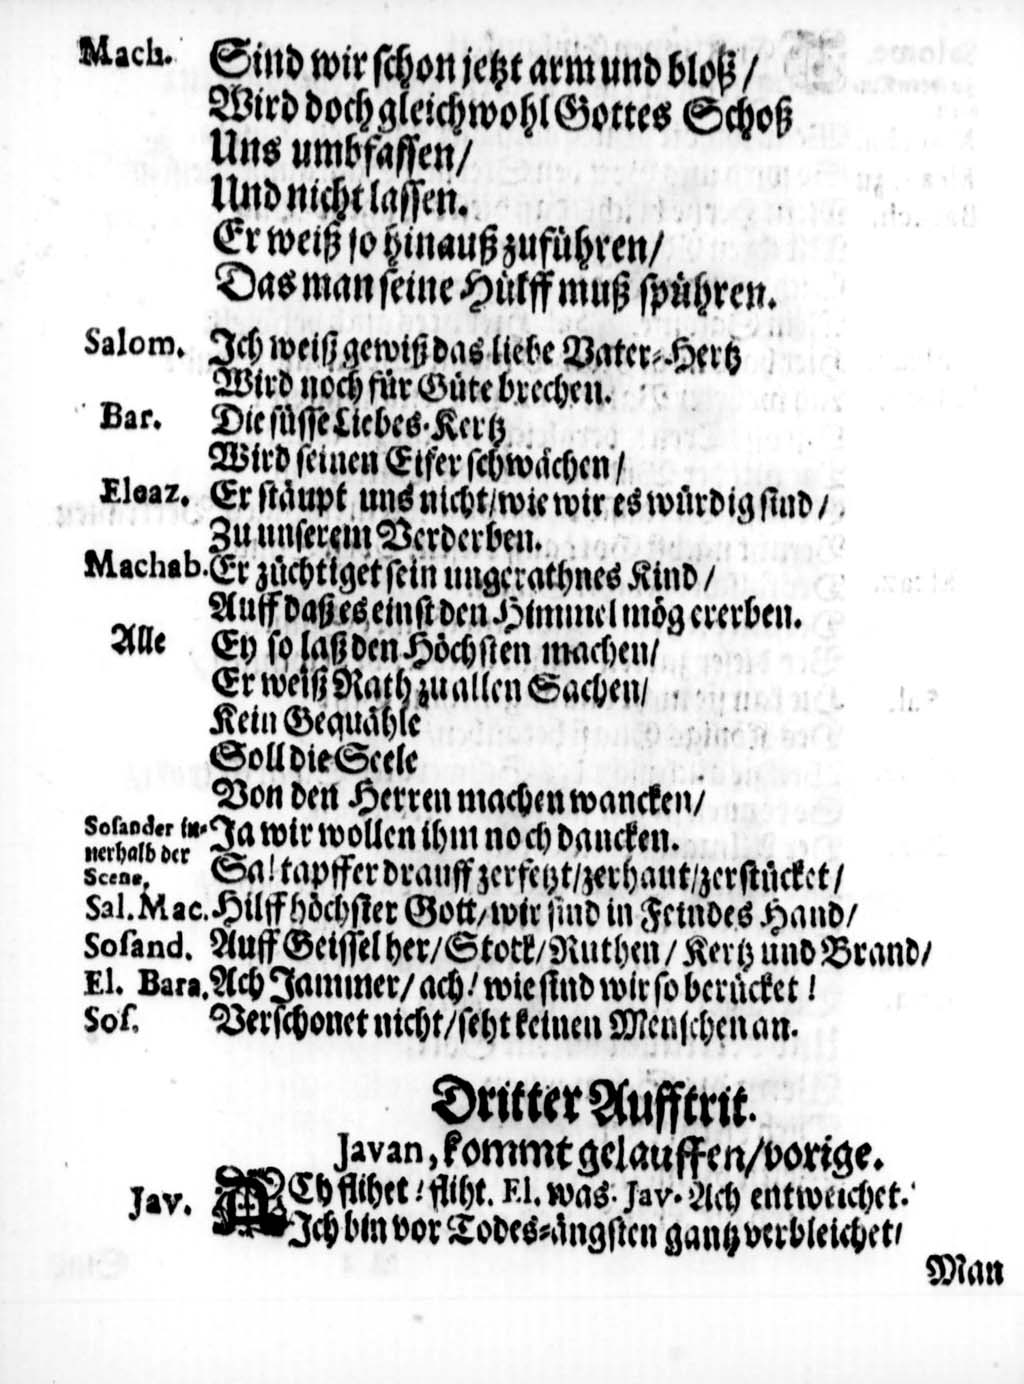 Mach. Sind wir schon jetzt arm und bloß/
Wird doch gleichwohl Gottes Schoß
Uns umbfassen/
Und nicht lassen.
Er weiß so hinauß zuführen/
Das man seine Hülff muß spühren.
Salom. Ich weiß gewiß das liebe Vater-Hertz
Wird noch für Güte brechen.
Bar. Die süsse Liebes-Kertz
Wird seinen Eifer schwächen/
Eleaz. Er stäupt uns nicht/wie wir es würdig sind/
Zu unserem Verderben.
Machab. Er züchtiget sein ungerathnes Kind/
Auff daß es einst den Himmel mög ererben.
Alle Ey so laß den Höchsten machen/
Er weiß Rath zu allen Sachen/
Kein Gequähle
Soll die Seele
Von den Herren machen wancken/
Ja wir wollen ihm noch dancken.
Sosander in-
nerhalb der
Scene, Sa! tapffer drauff zerfetzt/zerhaut/zerstücket/
Sal. Mac. Hilff höchster Gott/wir sind in Feindes Hand/
Sosand. Auff Geissel her/Stock/Ruthen/Kertz und Brand/
El. Bara. Ach Jammer/ach! wie sind wir so berücket!
Sos. Verschonet nicht/seht keinen Menschen an.
Dritter Aufftrit.
Javan, kommt gelauffen/vorige.
Jav. ACh flihet! fliht. El. was. Jav. Ach entweichet.
Ich bin vor Todes-ängsten gantz verbleichet/
Man